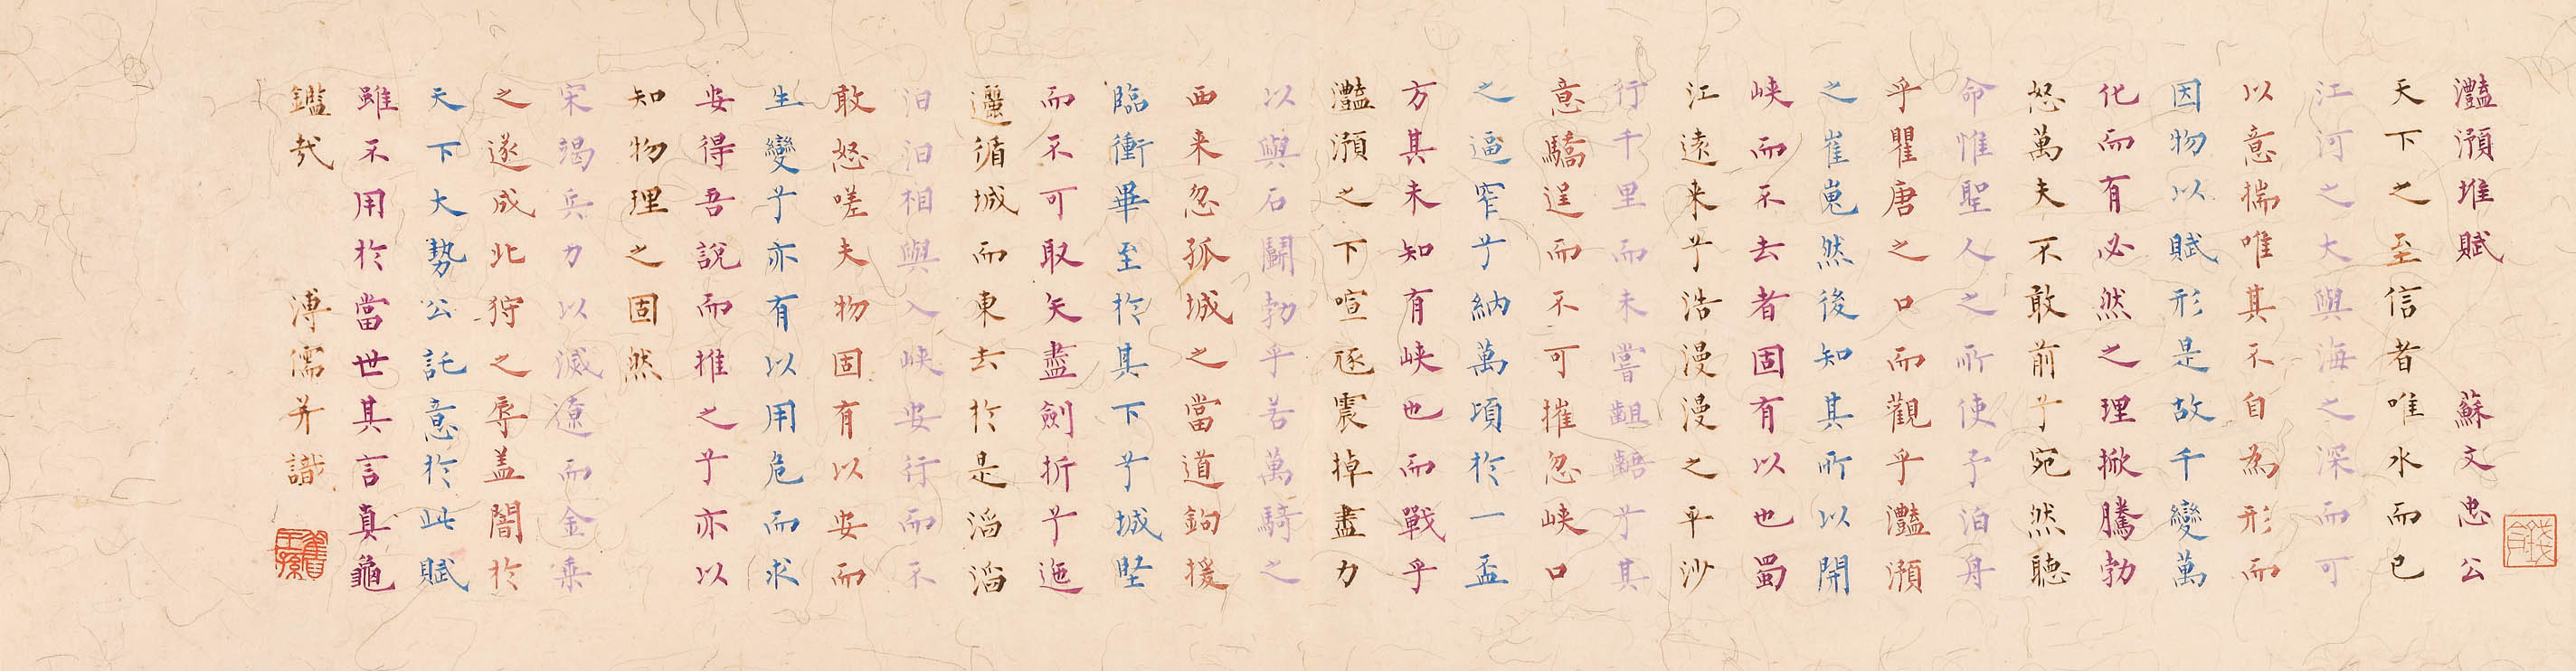 灩澦堆賦 蘇文忠公
天下之至信者唯水而已
江河之大與海之深而可
以意揣唯其不自為形而
因物以賦形是故千變萬
化而有必然之理掀騰勃
怒萬夫不敢前兮宛然聽
命惟聖人之所使予泊舟
乎瞿唐之口而觀乎灩澦
之崔嵬然後知其所以開
峽而不去者固有以也蜀
江遠来兮浩漫漫之平沙
行千里而未嘗齟齬兮其
意驕逞而不可摧忽峽口
之逼窄兮納萬頃於一盃
方其未知有峽也而戰乎
灩澦之下喧豗震掉盡力
以與石鬭勃乎若萬騎之
西来忽孤城之當道鉤援
臨衝畢至於其下兮城堅
而不可取矢盡劍折兮迤
邐循城而東去於是滔滔
汩汩相與入峽安行而不
敢怒嗟夫物固有以安而
生變兮亦有以用危而求
安得吾說而推之兮亦以
知物理之固然
宋竭兵力以滅遼而金乘
之遂成北狩之辱盖闇於
天下大勢公託意於此賦
雖不用於當世其言真龜
鑑哉 溥儒并識
舊王孫